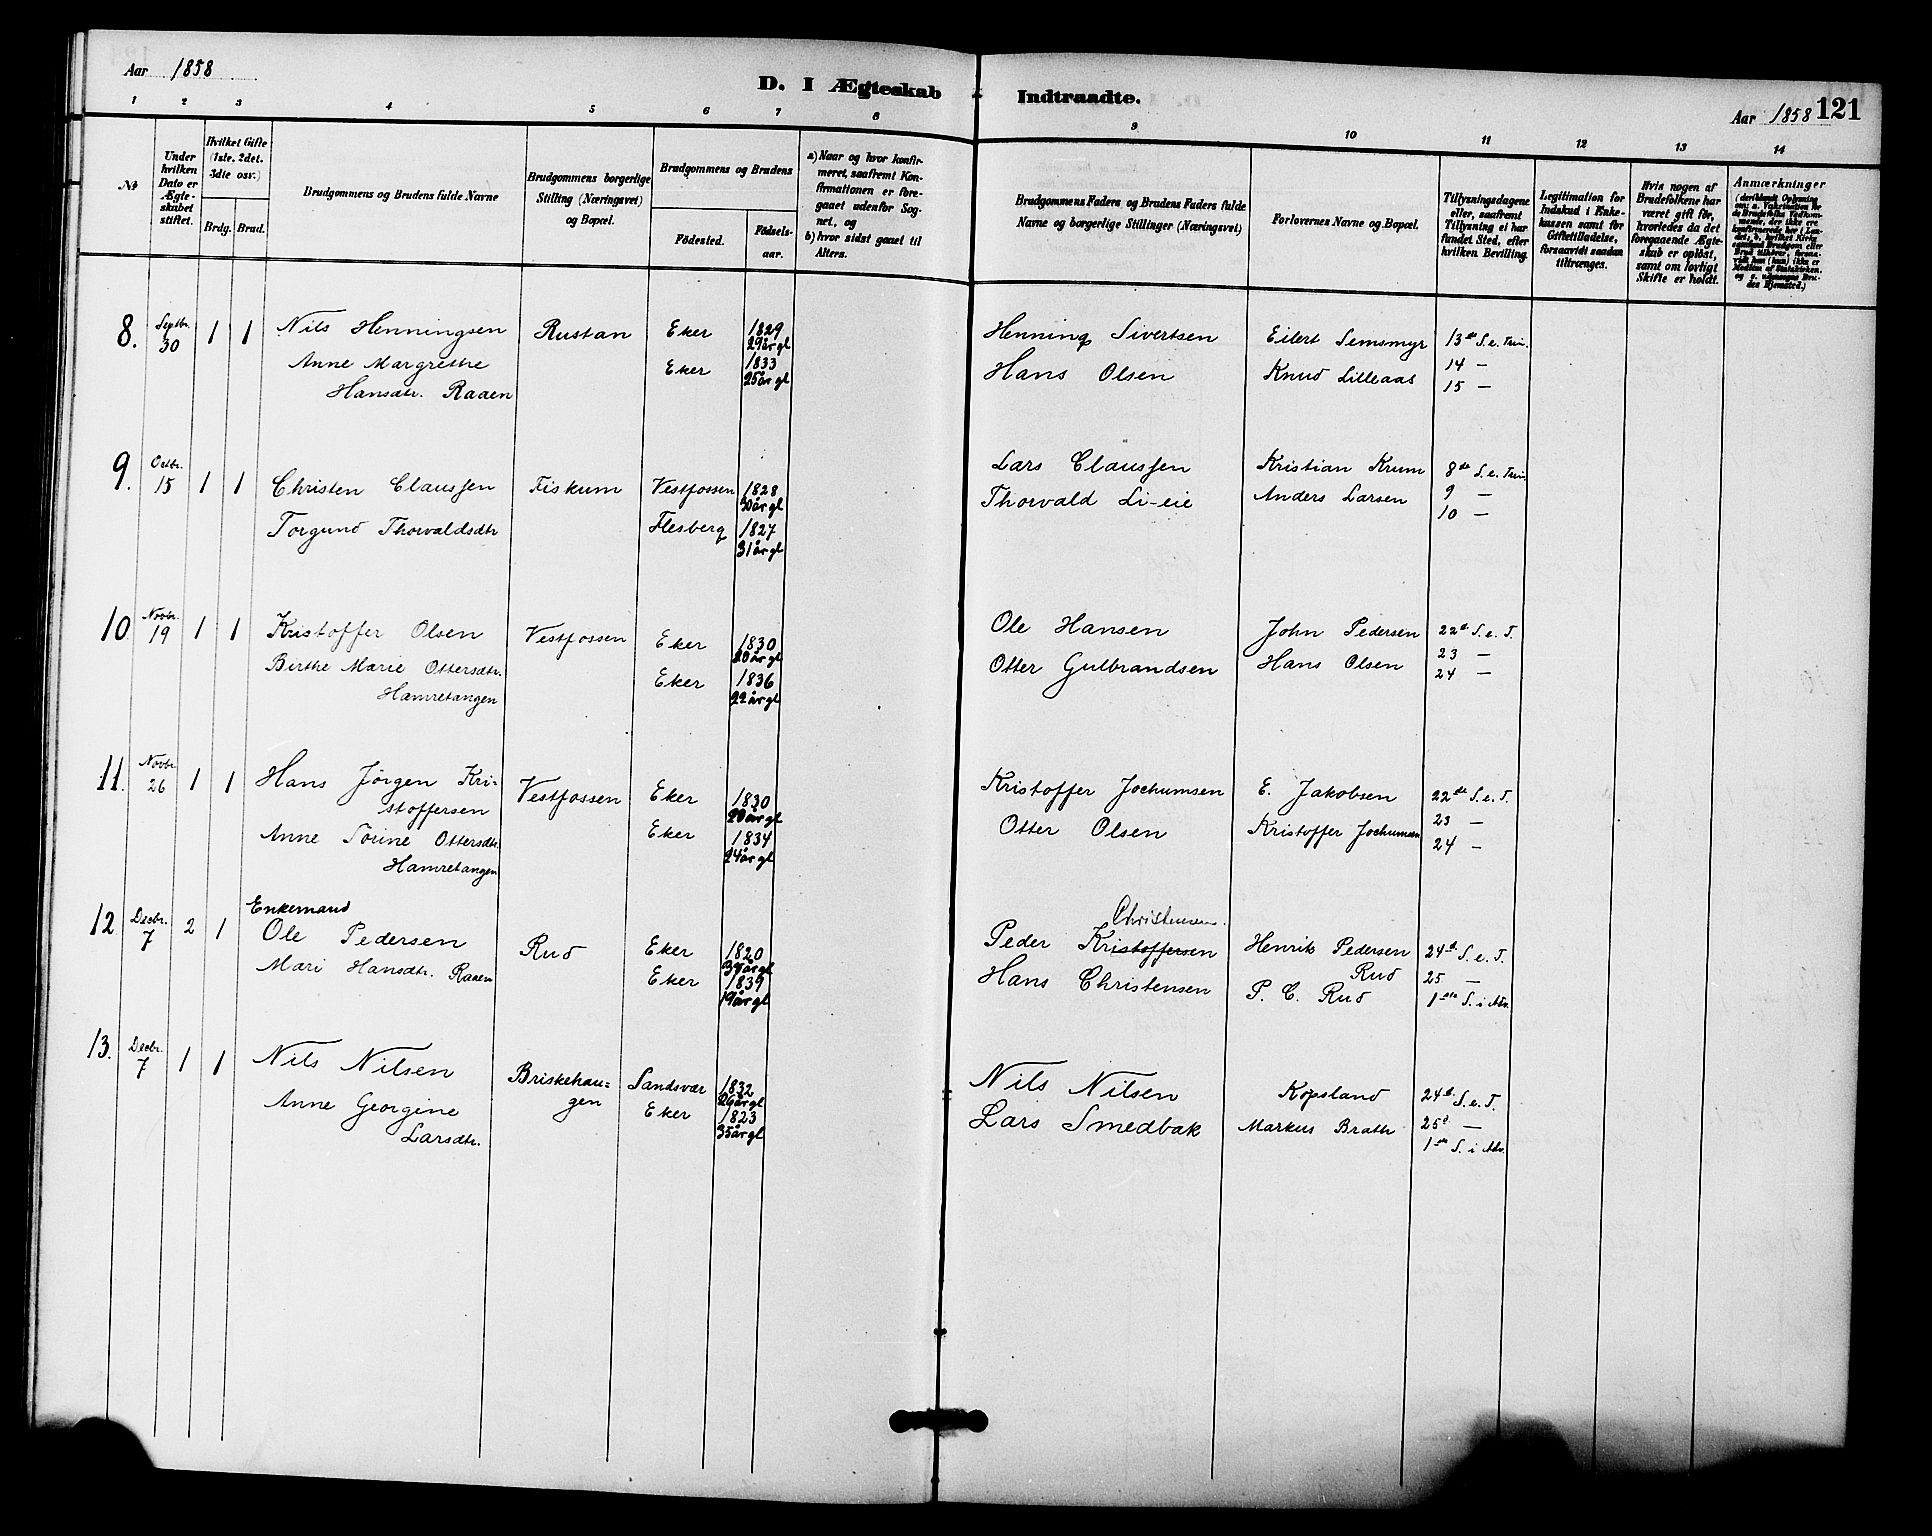 Aar 1858
D. I Ægteskab Indtraadte.
Aar 1858 121
1 2 3 4 5 6 7 8 9 10 11 12 13 14
№
Under hvilken Dato er Ægte-skabet stiftet.
Hvilket Gifte (1ste, 2det, 3die osv.)
Brdg. Brud.
Brudgommens og Brudens fulde Navne
Brudgommens borgerlige Stilling (Næringsvei) og Bopæl.
Brudgommens og Brudens
Födested.
Födsels-aar.
a) Naar og hvor konfir-meret, saafremt Kon-firmationen er fore-gaaet udenfor Sog-net, og
b) hvor sidst gaaet til Alters.
Brudgommens Faders og Brudens Faders fulde Navne og borgerlige Stillinger (Næringsvei)
Forlovernes Navne og Bopæl.
Tillysningsdagene eller, saafremt Tillysning ei har fundet Sted, efter hvilken Bevilling.
Legitimation for Indskud i Enke-kassen samt for Giftetilladelse, forsaavidt saadan tiltrænges.
Hvis nogen af Brudefolkene har været gift för, hvorledes da det foregaaende Ægte-skab er oplöst, samt om lovligt Skifte er holdt.
Anmærkninger
8. Septbr. 30 1 1 Nils Henningsen Rustan Eker 1829 29 år gl Henning Sivertsen Eilert Semsmyr 13de S. e. Trin.
Anne Margrethe Hansdtr. Raaen Eker 1833 25 år gl Hans Olsen Knud Lilleaas 14 —
15 —
9. Octbr. 15 1 1 Christen Claussen Fiskum Vestfossen 1828 30 år gl Lars Claussen Kristian Krum 8de S. e. Trin.
Torgund Thorvaldsdtr Flesberg 1827 31 år gl Thorvald Li-eie Anders Larsen 9 —
10 —
10 Novbr. 19 1 1 Kristoffer Olsen Vestfossen Eker 1830 20 år gl Ole Hansen John Pedersen 22d S. e. T.
Birthe Marie Ottersdtr. Hamretangen Eker 1836 22 år gl Otter Gulbrandsen Hans Olsen 23 —
24 —
11. Novbr 26 1 1 Hans Jörgen Kri-stoffersen Vestfossen Eker 1830 20 år gl Kristoffer Jochumsen E. Jakobsen 22de S. e. T.
Anne Ottersdtr. Hamretangen Eker 1834 24 år gl Otter Olsen Kristoffer Jochumsen 23 —
24 —
12 Decbr. 7 2 1 Enkemand Ole Pedersen Rud Eker 1820 år gl Peder Kristoffersen Christensen Henrik Pedersen Rud 24d S. e. T.
Mari Hansdtr. Raaen Eker 1839 19 år gl Hans Christensen P. C. Rud 25 —
1ste S. i Adv.
13. Decbr. 7 1 1 Nils Nilsen Briskehau-gen Sandsvær 1832 26 år gl Nils Nilsen Kopsland 24d S. e. T.
Anne Georgine Larsdtr. Eker 1823 35 år gl Lars Smedbak Markus Brath 25d —
1ste S. i Adv.